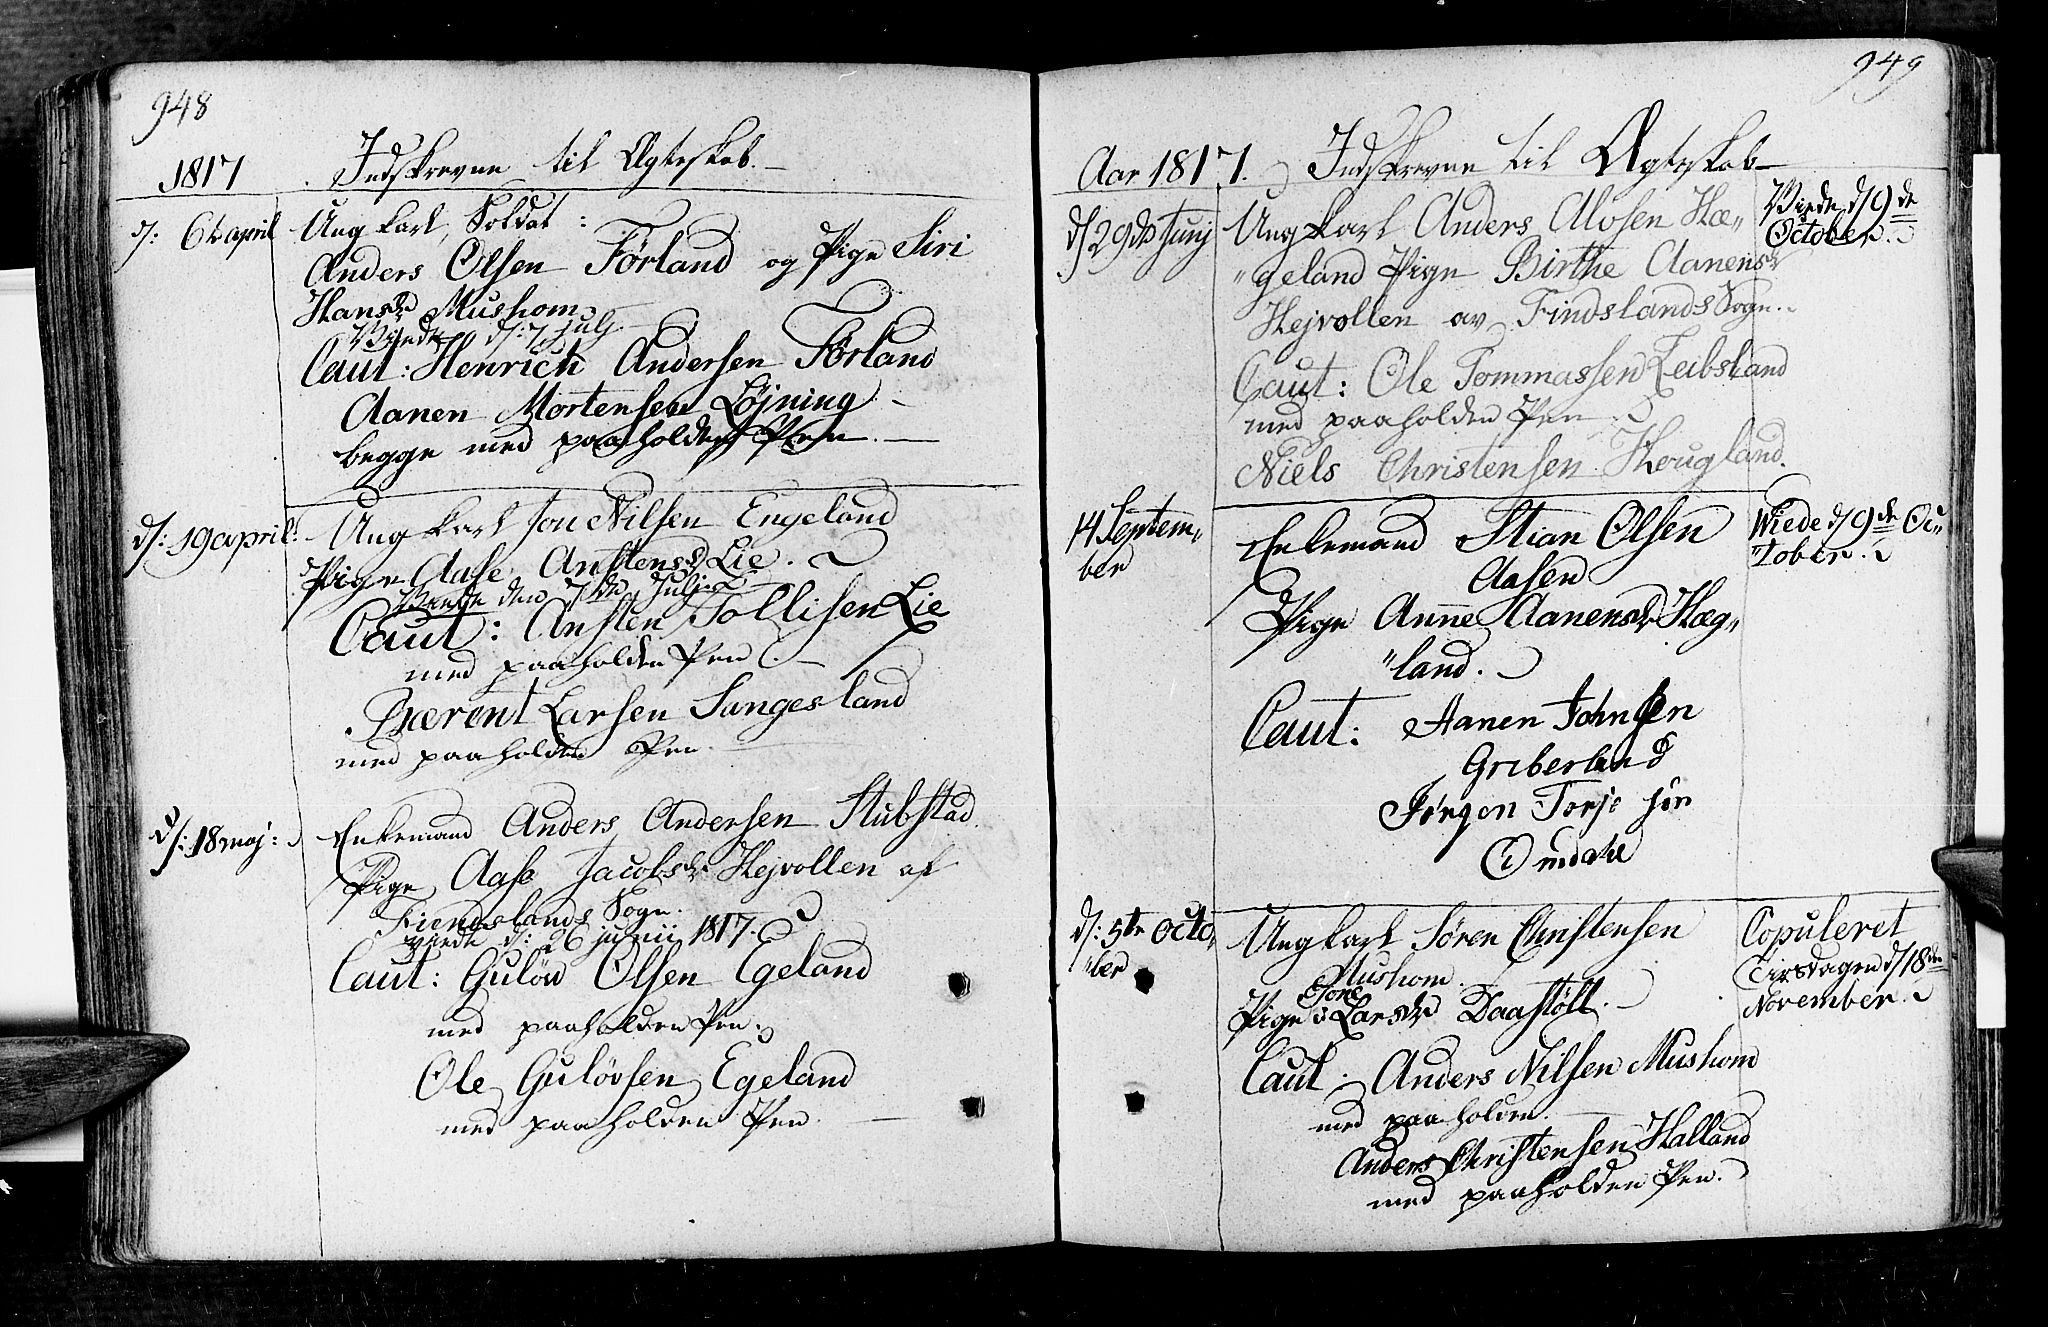 948
1817 Indskrevne til Ægteskab.
d: 6te april Ung karl, Soldat:
Anders Olsen Førland og Pige Siri
Hansdr Mushom
Viede d: 7 july
Caut: Henrich Andersen Førland
Aanen Mortensen Løjning
begge med paaholden Pen.
d: 19 april: Ung karl Jon Nilsen Engeland
Pige Aase Anstensdr Lie.
Viede den 7de July
Caut: Ansten Tollisen Lie
med paaholden Pen.
Bærent Larsen Sangesland
med paaholden Pen.
d: 18 maj: Enkemand Anders Andersen Stubstad
Pige Aase Jacobsdr Hejvollen af
Fiendslands Sogn.
viede d: 26 junii 1817.
Caut: Guløv Olsen Egeland
med paaholden Pen.
Ole Guløvsen Egeland
med paaholden Pen.
949
Aar 1817. Indskrevne til Ægteskab
d/29de Junj Ung karl Anders Alosen Hæ„
„geland Pige Birthe Aanensdr
Hejvollen av Findslands Sogn.
Caut: Ole Tommassen Leibsland
med paaholden Pen
Niels Christensen Hougland.
Viede d/9de
October.
14 Septem„
ber
Enkemand Stian Olsen
Aasen
Pige Anne Aanensdr Hæg„
„land.
Caut: Aanen Johnsen
Griberland
Jørgen Torje søn
Omdahl
Wiede d/9de Oc„
„tober.
d: 5te Octo„
„ber
Ung karl Søren Christensen
Mushom.
Tone
Pige Larsdr Daastøll.
Caut. Anders Nilsen Mushom
med paaholden.
Anders Christensen Halland
med paaholden Pen.
Copuleret
Tirsdagen d/18de
November.